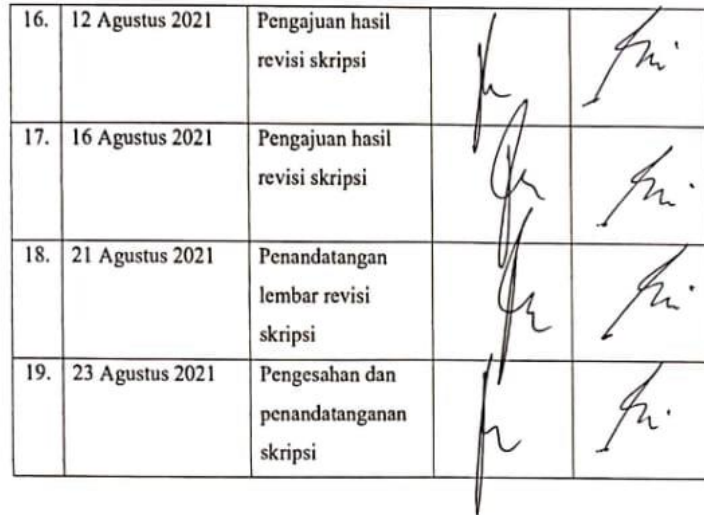 16. 12 Agustus 2021 Pengajuan hasil
revisi skripsi
17. 16 Agustus 2021 Pengajuan hasil
revisi skripsi
18. 21 Agustus 2021 Penandatangan
lembar revisi
skripsi
19. 23 Agustus 2021 Pengesahan dan
penandatanganan
skripsi